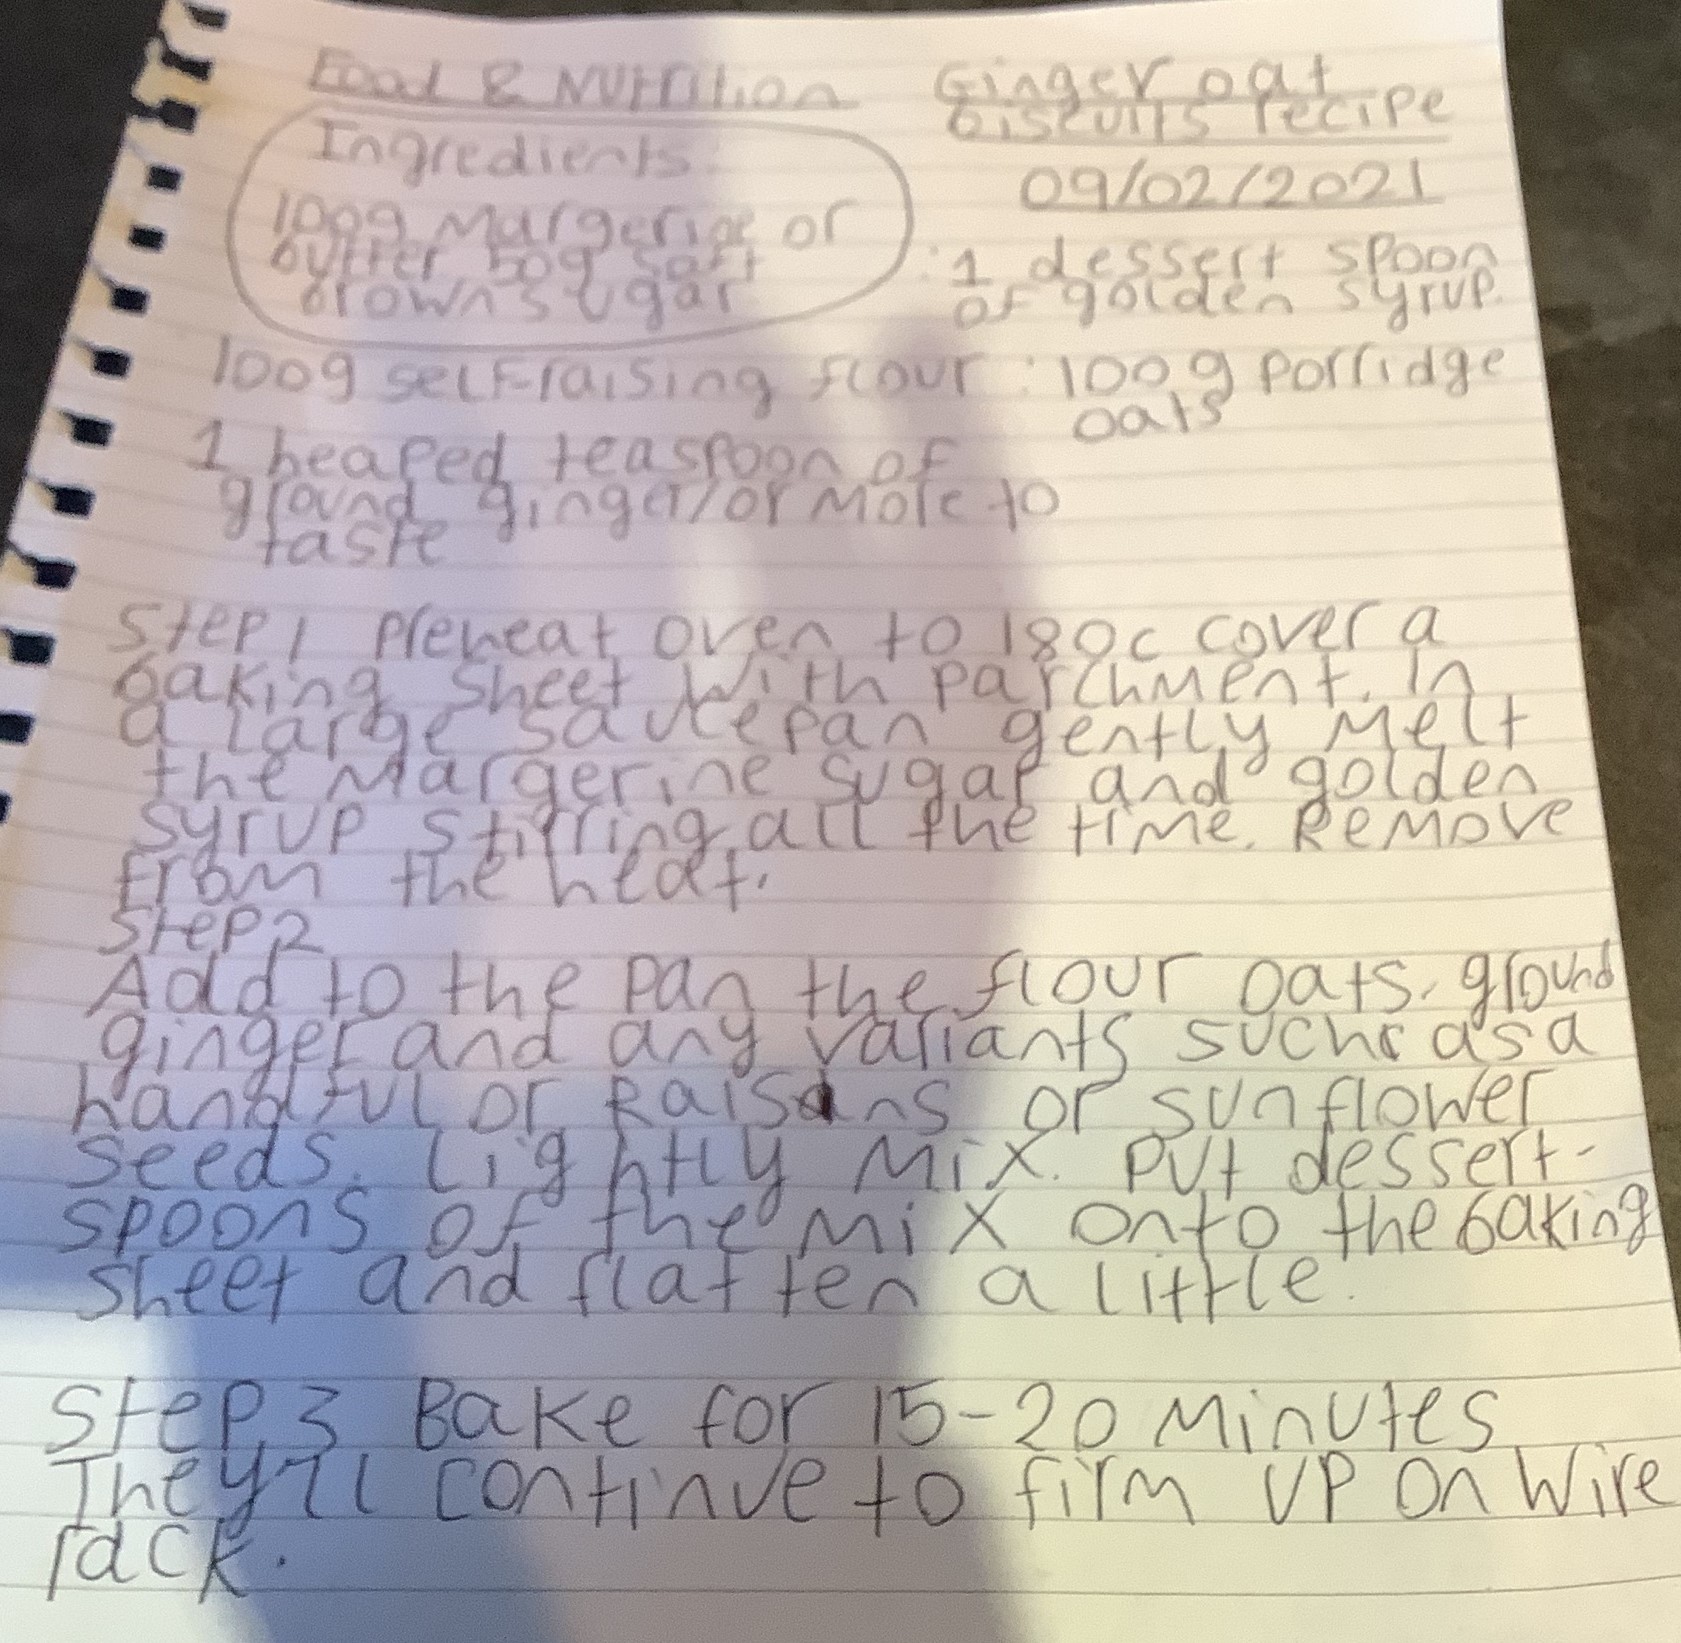 Food & Nutrition
Ginger oat
biscuits recipe
09/02/2021
Ingredients
100g Margerine or
butter 50g soft
brown sugar
: 1 dessert spoon
of golden syrup.
100g self-raising flour : 100g porridge
oats
1 heaped teaspoon of
ground ginger/or more to
taste
Step 1 Preheat oven to 180c cover a
baking sheet with parchment. In
a large saucepan gently melt
the Margerine sugar and golden
syrup stirring all the time. Remove
from the heat.
Step 2
Add to the pan the flour oats, ground
ginger and any variants such as a
handful or Raisins or sunflower
seeds. Lightly Mix. Put dessert-
spoons of the Mix onto the baking
sheet and flatten a little.
Step 3 Bake for 15-20 Minutes
They'll continue to firm up on wire
rack.